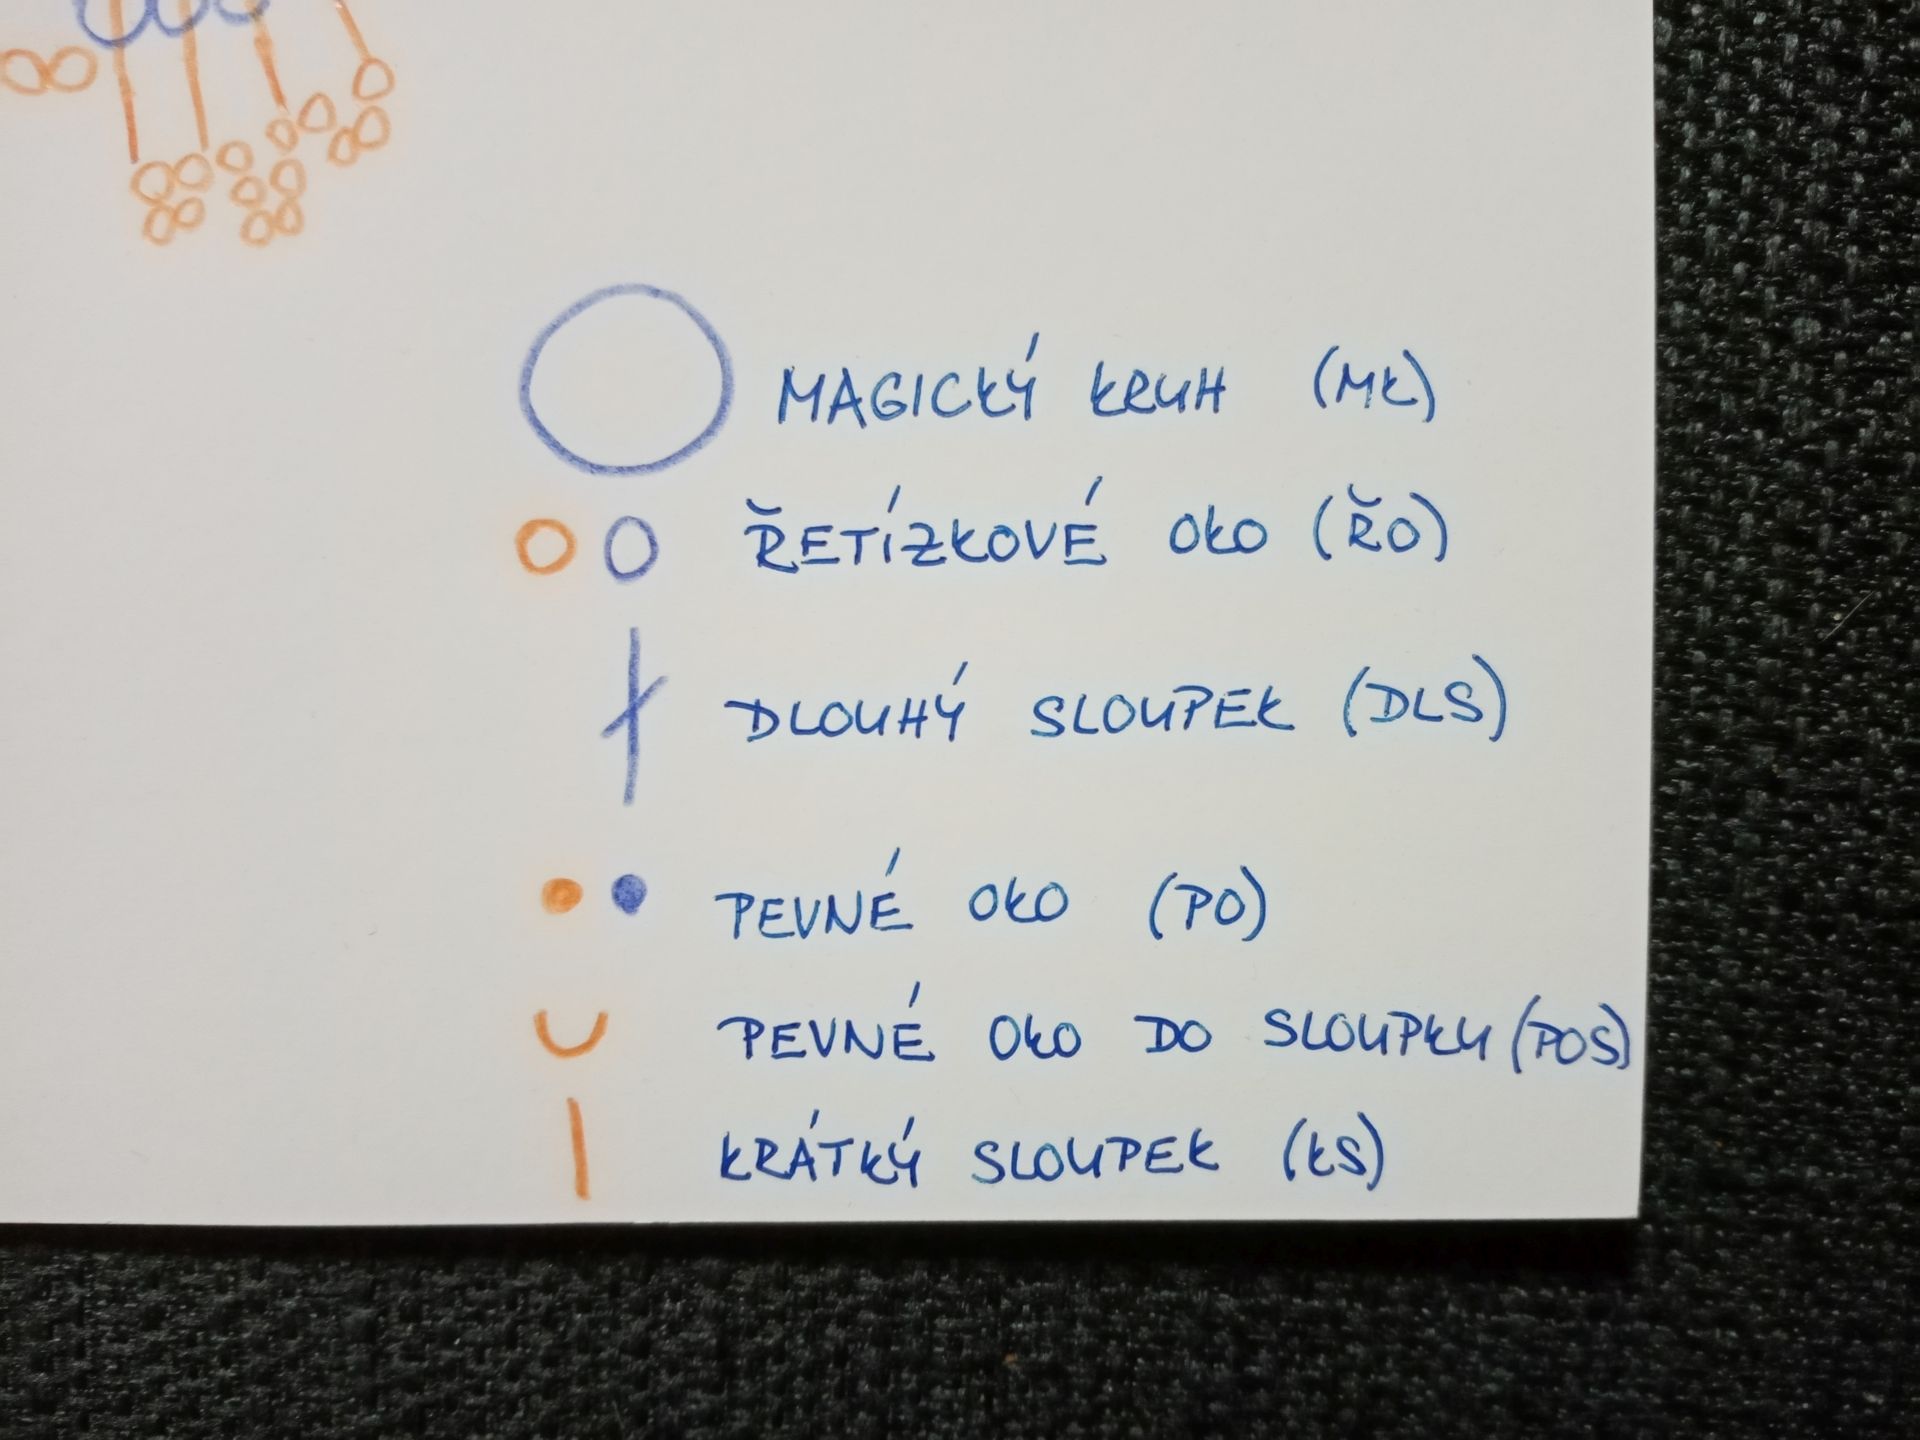 MAGICKÝ KRUH (MK)
ŘETÍZKOVÉ OKO (ŘO)
DLOUHÝ SLOUPEK (DLS)
PEVNÉ OKO (PO)
PEVNÉ OKO DO SLOUPKU (POS)
KRÁTKÝ SLOUPEK (KS)